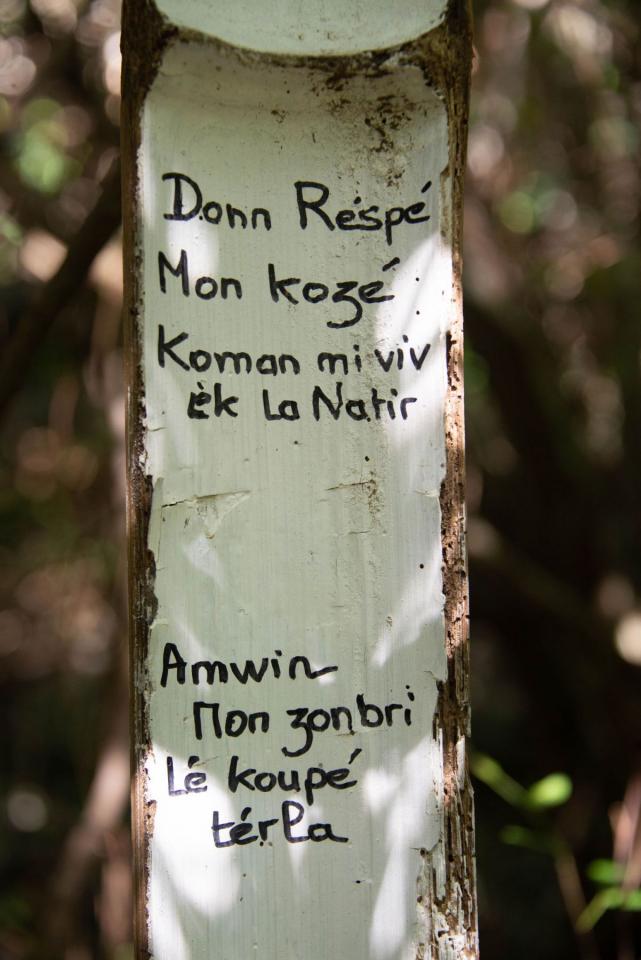 Donn Réspé
Mon kozé
Koman mi viv
èk La Natir
Amwin
Mon zonbri
Lé koupé
térla